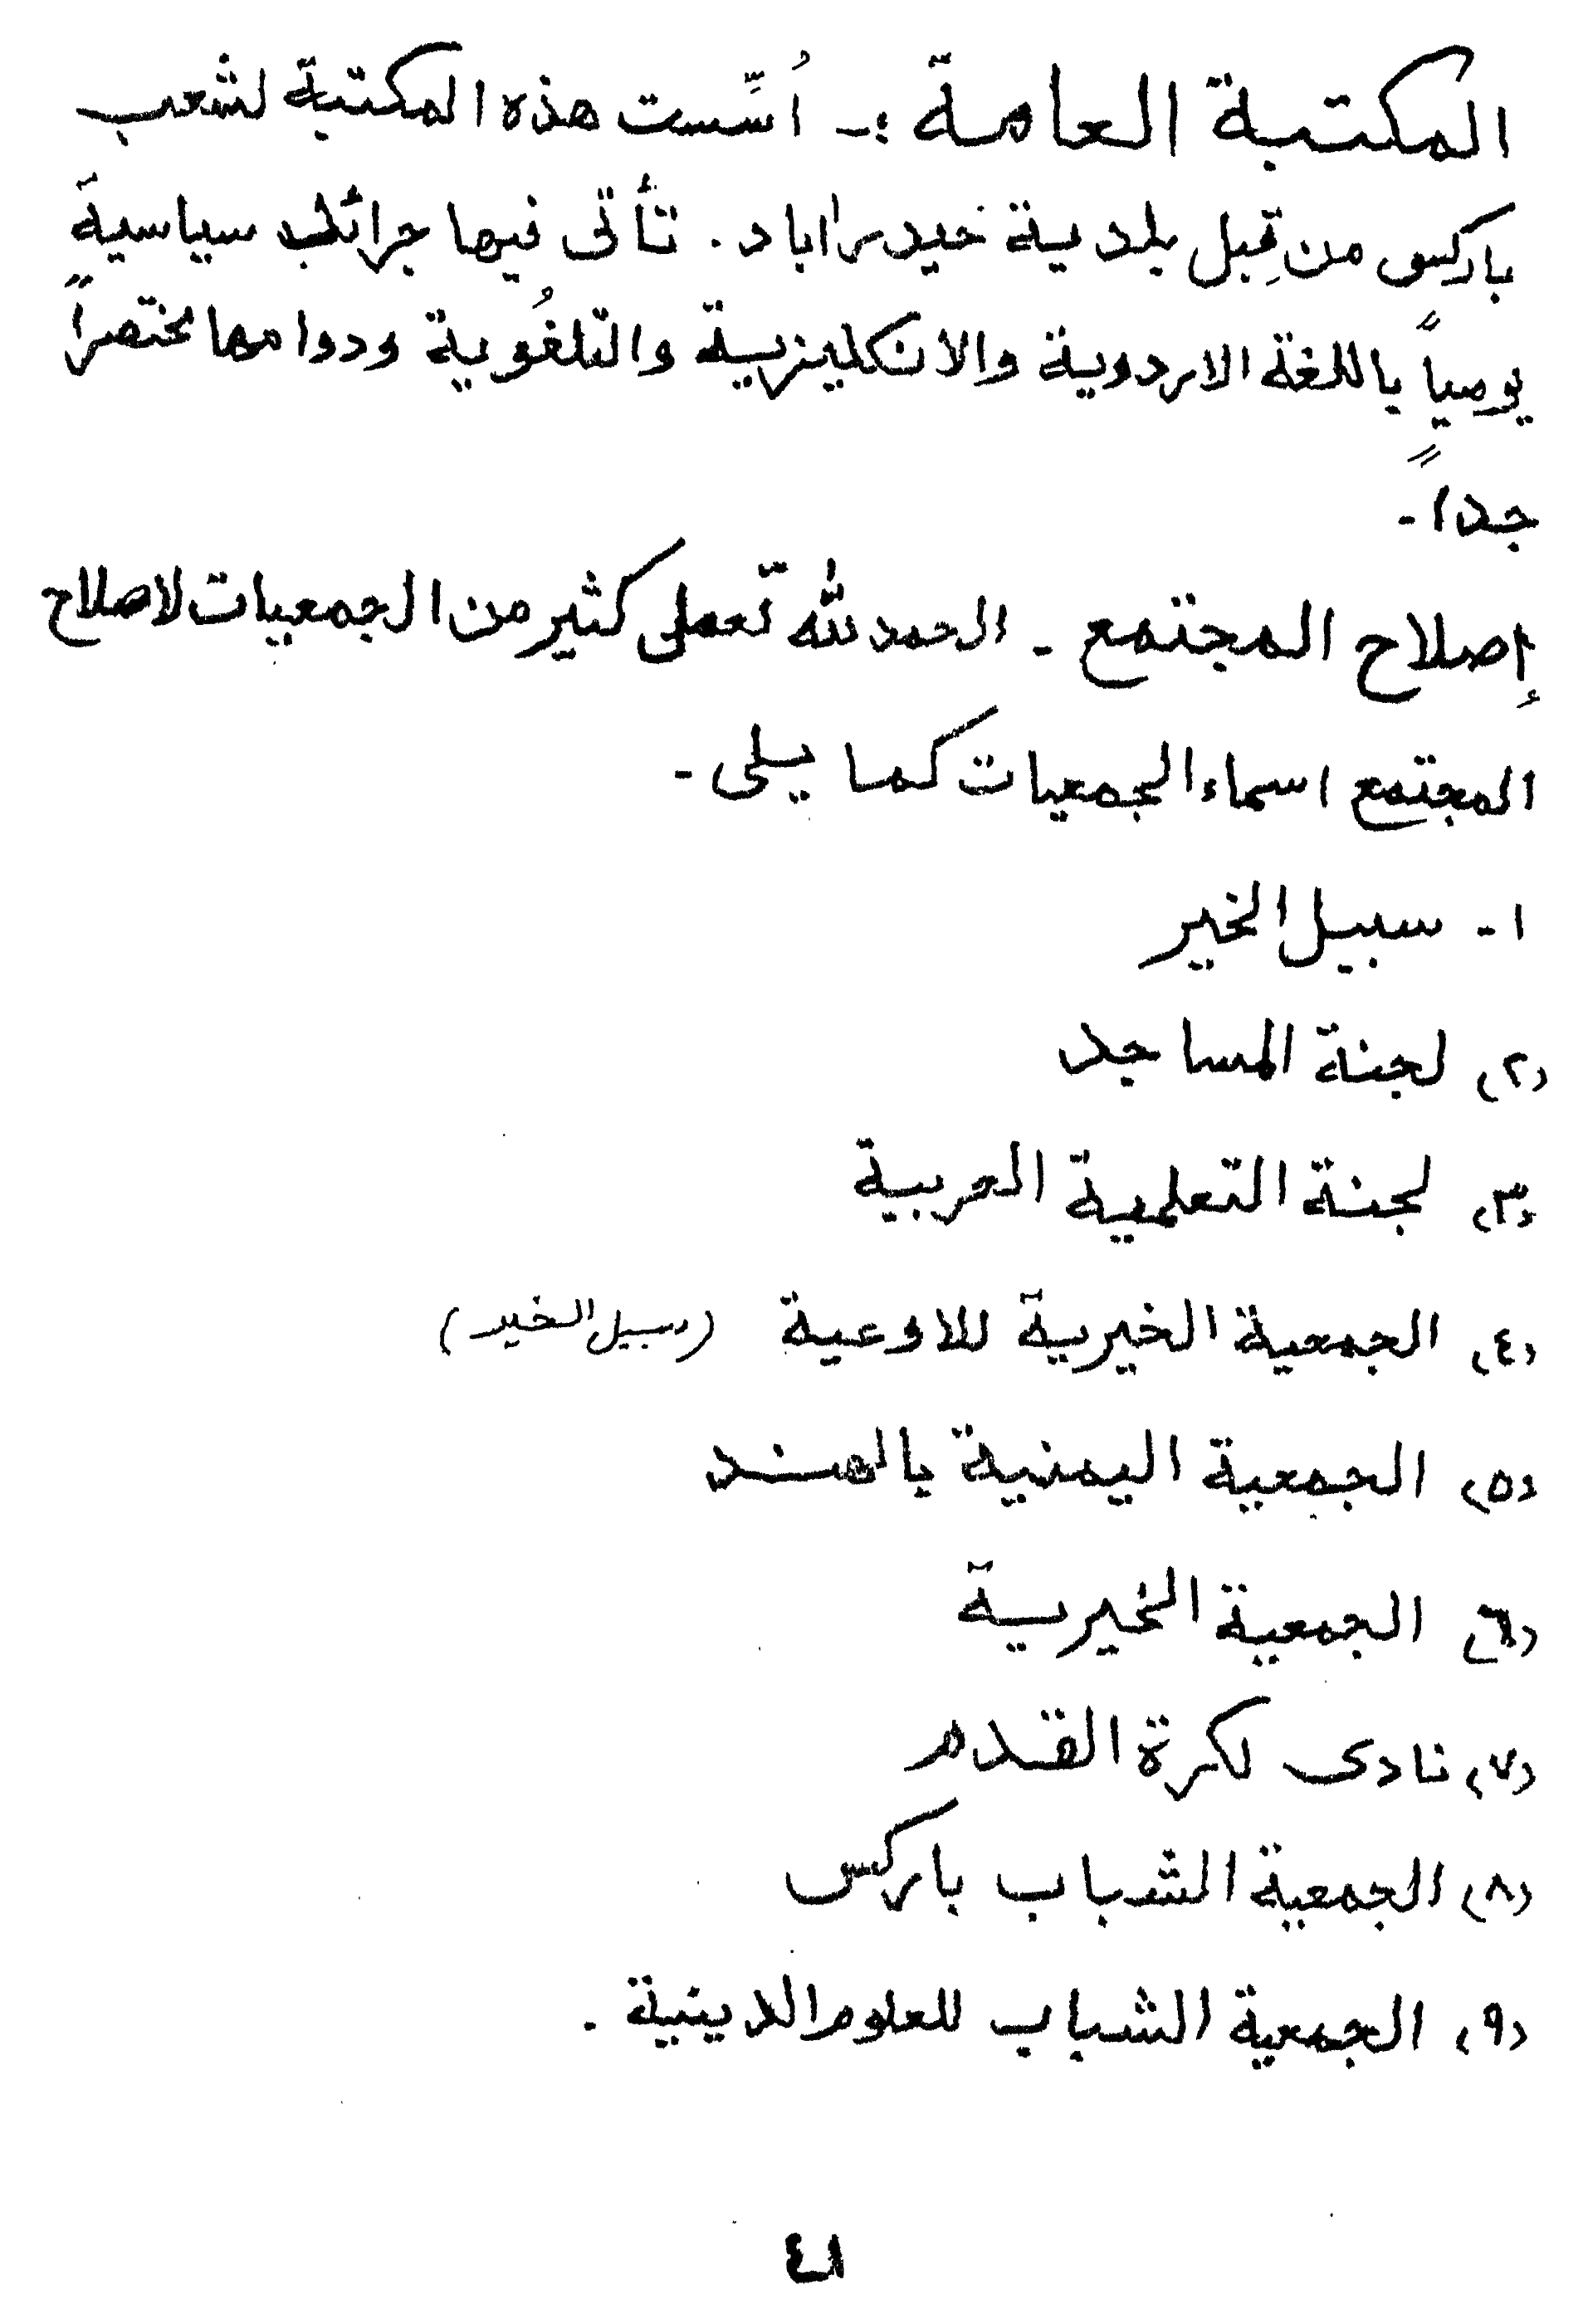 المكتبة العامة :- اُسِّست هذه المكتبة لشعب
باركس من قِبل بلدية حيدراباد . تأتى فيها جرائد سياسية
يومياً باللغة الاردوية والانكليزية والتلغُوية ودوامها مختصراً
جداً -
إصلاح المجتمع - الحمد لله تعملى كثير من الجمعيات لاصلاح
المجتمع اسماء الجمعيات كما يلى -
١- سبيل الخير
(٢) لجنة المساجد
(٣) لجنة التعلمية العربية
(٤) الجمعية الخيرية للاوعية (سبيل الخير)
(٥) الجمعية اليمنية بالهند
(٦) الجمعية الخيرية
(٧) نادى لكرة القدم
(٨) الجمعية الشباب باركس
(٩) الجمعية الشباب للعلوم الدينية .
٤١